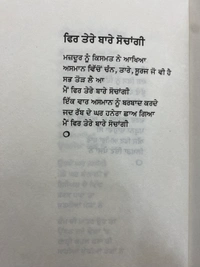 ਫਿਰ ਤੇਰੇ ਬਾਰੇ ਸੋਚਾਂਗੀ
ਮਜ਼ਦੂਰ ਨੂੰ ਕਿਸਮਤ ਨੇ ਆਖਿਆ
ਅਸਮਾਨ ਵਿੱਚੋਂ ਚੰਨ, ਤਾਰੇ, ਸੂਰਜ ਜੋ ਵੀ ਹੈ
ਸਭ ਤੋੜ ਲੈ ਆ
ਮੈਂ ਫਿਰ ਤੇਰੇ ਬਾਰੇ ਸੋਚਾਂਗੀ
ਇੱਕ ਵਾਰ ਅਸਮਾਨ ਨੂੰ ਬਰਬਾਦ ਕਰਦੇ
ਜਦ ਰੱਬ ਦੇ ਘਰ ਹਨੇਰਾ ਛਾ ਗਿਆ
ਮੈਂ ਫਿਰ ਤੇਰੇ ਬਾਰੇ ਸੋਚਾਂਗੀ